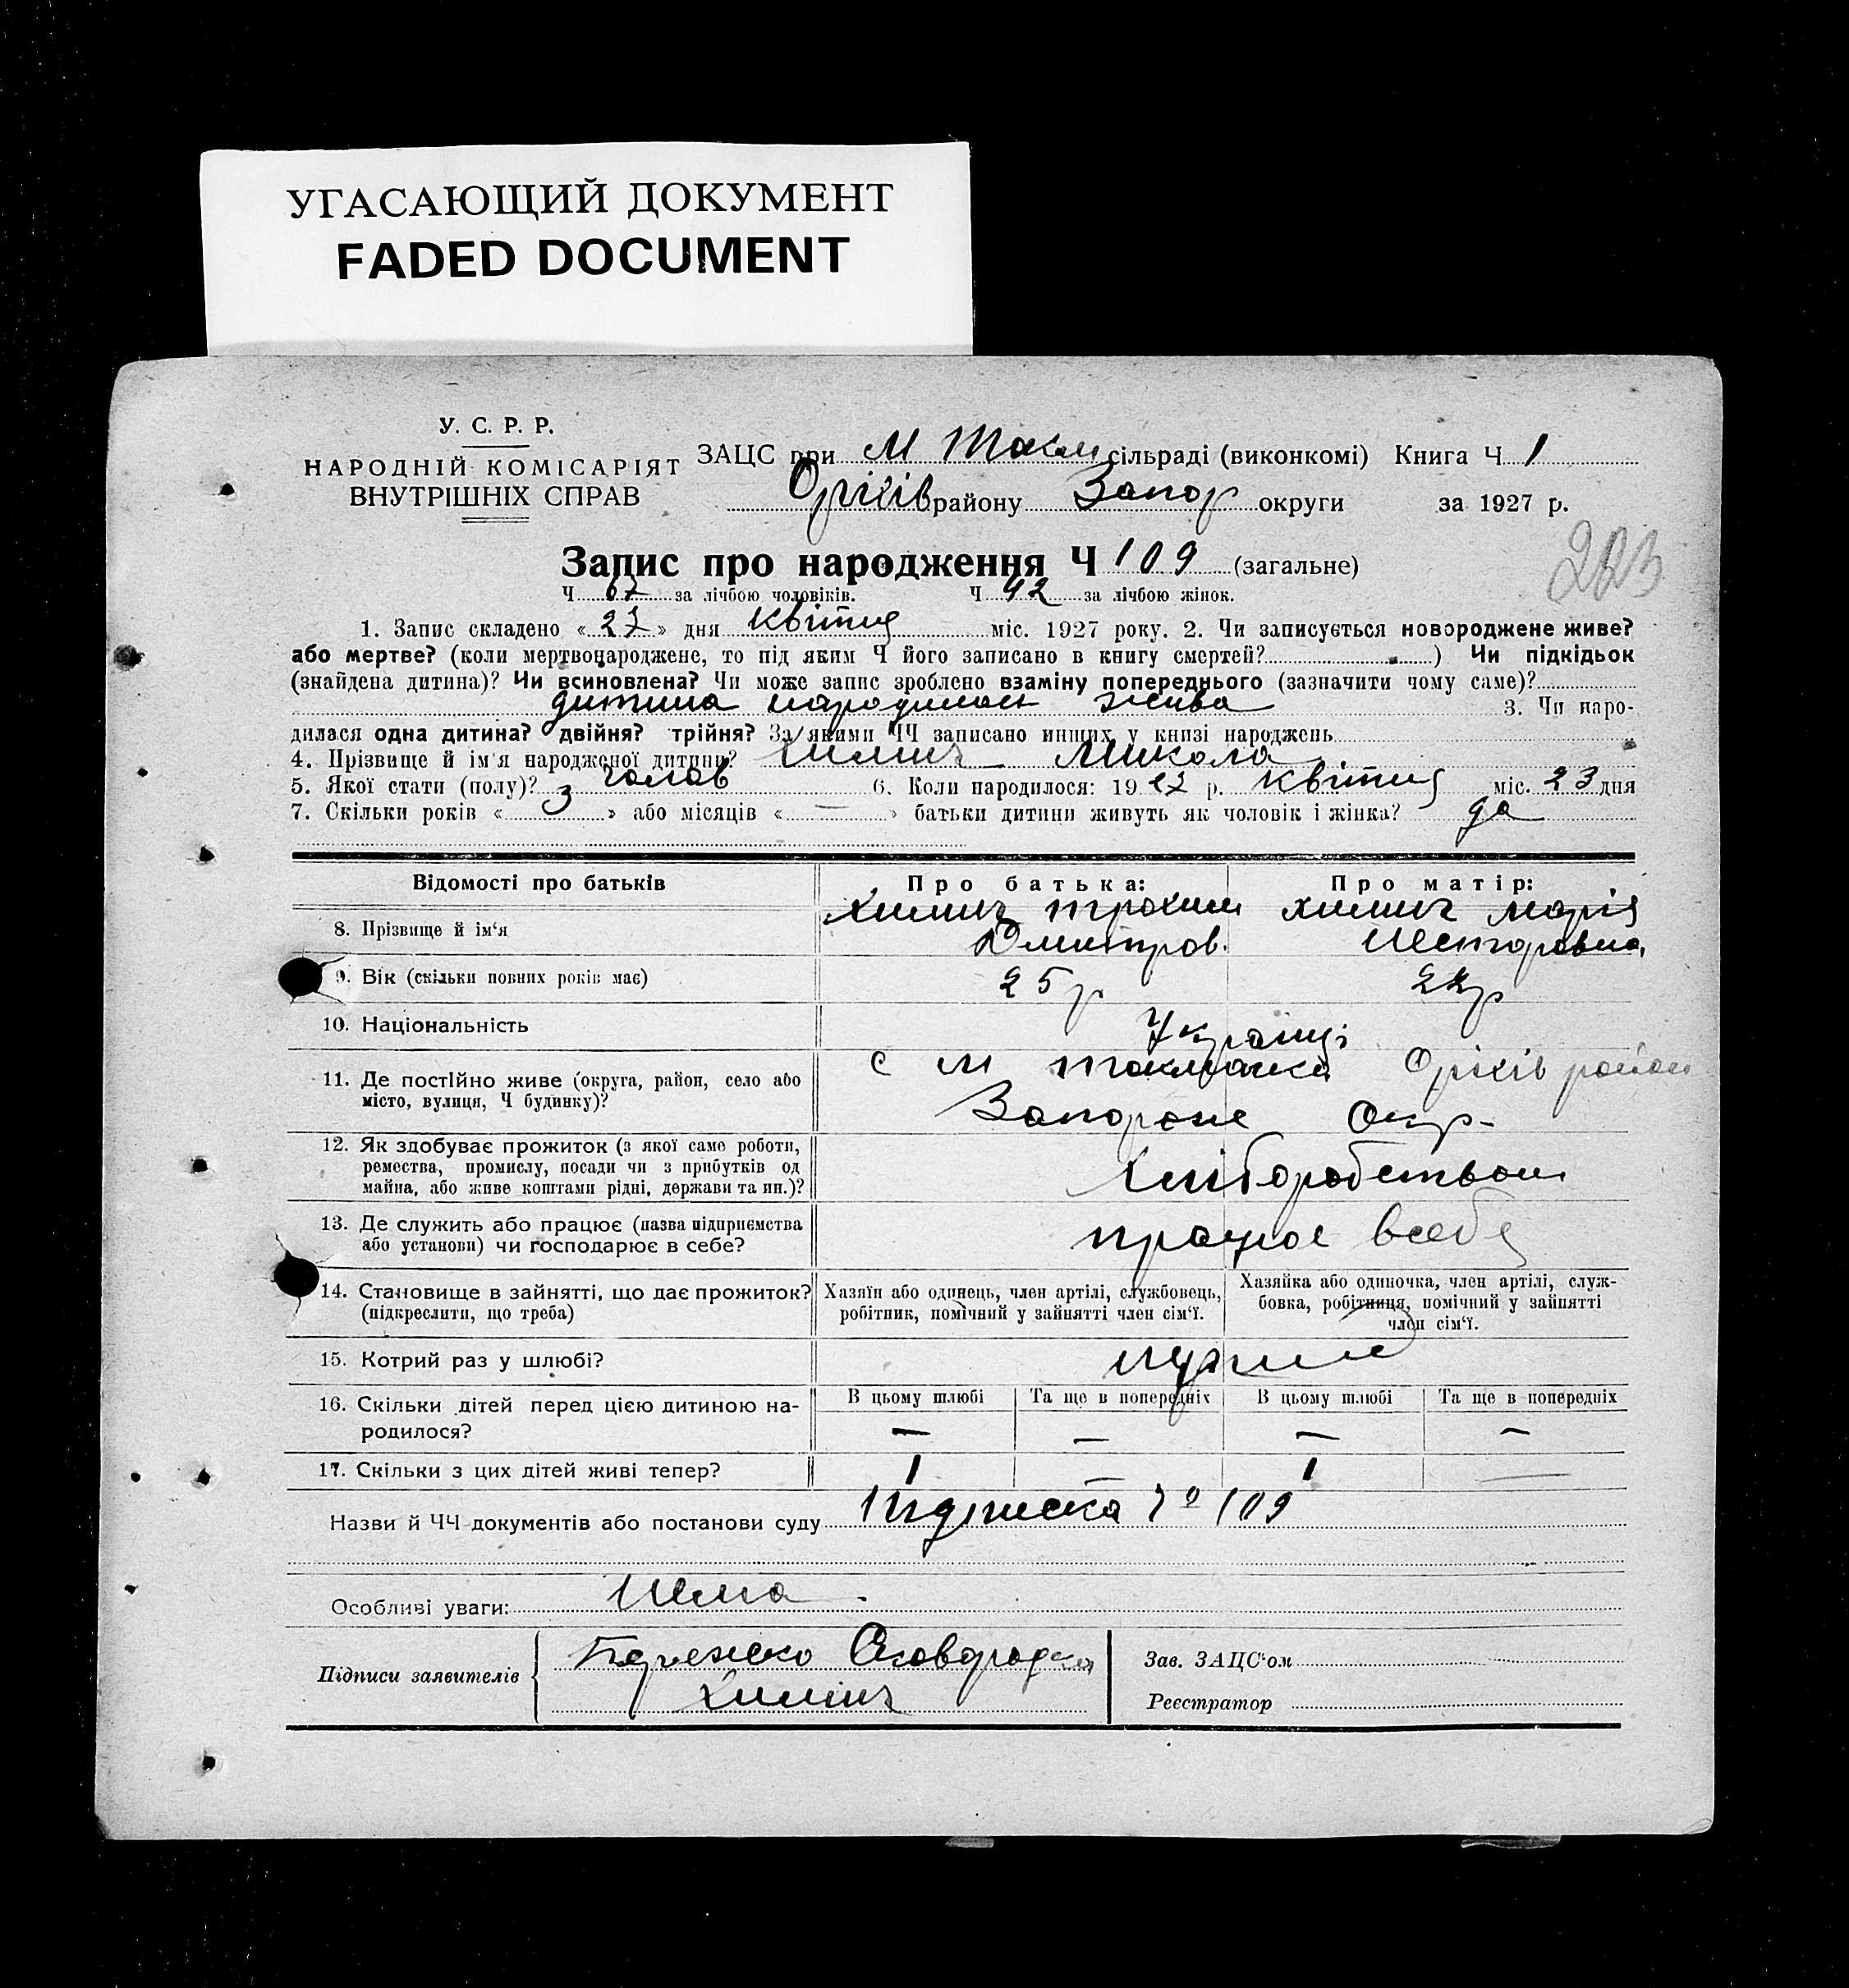 УГАСАЮЩИЙ ДОКУМЕНТ
FADED DOCUMENT
У. С. Р. Р.
НАРОДНІЙ КОМІСАРІЯТ
ВНУТРІШНІХ СПРАВ
ЗАЦС при М Токм сільраді (виконкомі) Книга Ч 1
Оріхів району Запор округи за 1927 р.
223
Запис про народження Ч 109 (загальне)
Ч 67 за лічбою чоловіків. Ч 42 за лічбою жінок.
1. Запис складено « 27 » дня квітня міс. 1927 року. 2. Чи записується новороджене живе?
або мертве? (коли мертвонароджене, то під яким Ч його записано в книгу смертей?) Чи підкідьок
(знайдена дитина)? Чи всиновлена? Чи може запис зроблено взаміну попереднього (зазначити чому саме)?
дитина народилась жива 3. Чи наро-
дилася одна дитина? двійня? трійня? За якими ЧЧ записано инших у книзі народжень
4. Прізвище й ім'я народженої дитини? Химич Микола
5. Якої стати (полу)? чолов 6. Коли народилося: 19 27 р. квітня міс. 23 дня
7. Скільки років « 3 » або місяців « — » батьки дитини живуть як чоловік і жінка? да
Відомості про батьків Про батька: Про матір:
8. Прізвище й ім'я Химич Трохим Химич Марія
Дмитров. Несторовна
9. Вік (скільки повних років має) 25 р 22 р
10. Національність Українці
11. Де постійно живе (округа, район, село або
місто, вулиця, Ч будинку)?
с М Токмачка Оріхів район
Запорож Окр.
12. Як здобуває прожиток (з якої саме роботи,
ремества, промислу, посади чи з прибутків од
майна, або живе коштами рідні, держави та ин.)?
Хліборобством
13. Де служить або працює (назва підприємства
або установи) чи господарює в себе?
працює всебе
14. Становище в зайнятті, що дає прожиток?
(підкреслити, що треба)
Хазяїн або одинець, член артілі, службовець,
робітник, помічний у зайнятті член сім'ї.
Хазяйка або одиночка, член артілі, служ-
бовка, робітниця, помічний у зайнятті
член сім'ї.
15. Котрий раз у шлюбі?
16. Скільки дітей перед цією дитиною на-
родилося?
В цьому шлюбі Та ще в попередніх В цьому шлюбі Та ще в попередніх
— — — —
17. Скільки з цих дітей живі тепер? 1 — 1 —
Назви й ЧЧ документів або постанови суду Підписка № 109
Особливі уваги: Нема
Підписи заявителів Сковородка
Химич
Зав. ЗАЦС'ом
Реєстратор